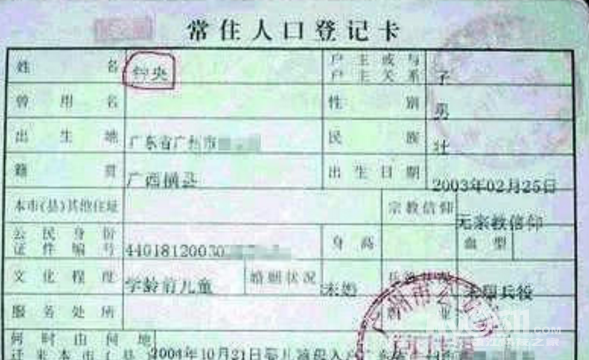 常住人口登记卡
姓名 钟央 户主或与户主关系 子
曾用名 性别 男
出生地 广东省广州市 民族 壮
籍贯 广西横县 出生日期 2003年02月25日
本市(县)其他住址 宗教信仰 无宗教信仰
公民身份证件编号 44018120030 身高 血型
文化程度 学龄前儿童 婚姻状况 未婚 未服兵役
服务处所
何时由何地迁来本市(县) 2004年10月21日
广州市公安局